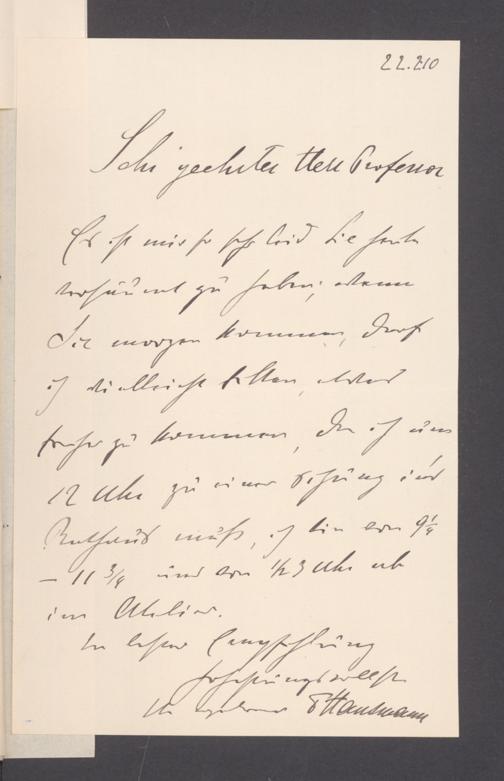 22.2.10
Sehr geehrter Herr Professor
Es ist mir so sehr leid Sie heute
versäumt zu haben; wenn
Sie morgen kommen, darf
ich vielleicht bitten, etwas
früher zu kommen, da ich um
12 Uhr zu einer Sitzung ins
Rathaus muß, ich bin von 9¼
– 11¾ und von ½3 Uhr ab
im Atelier.
In bester Empfehlung
hochachtungsvollst
Ihr ergebener FHausmann